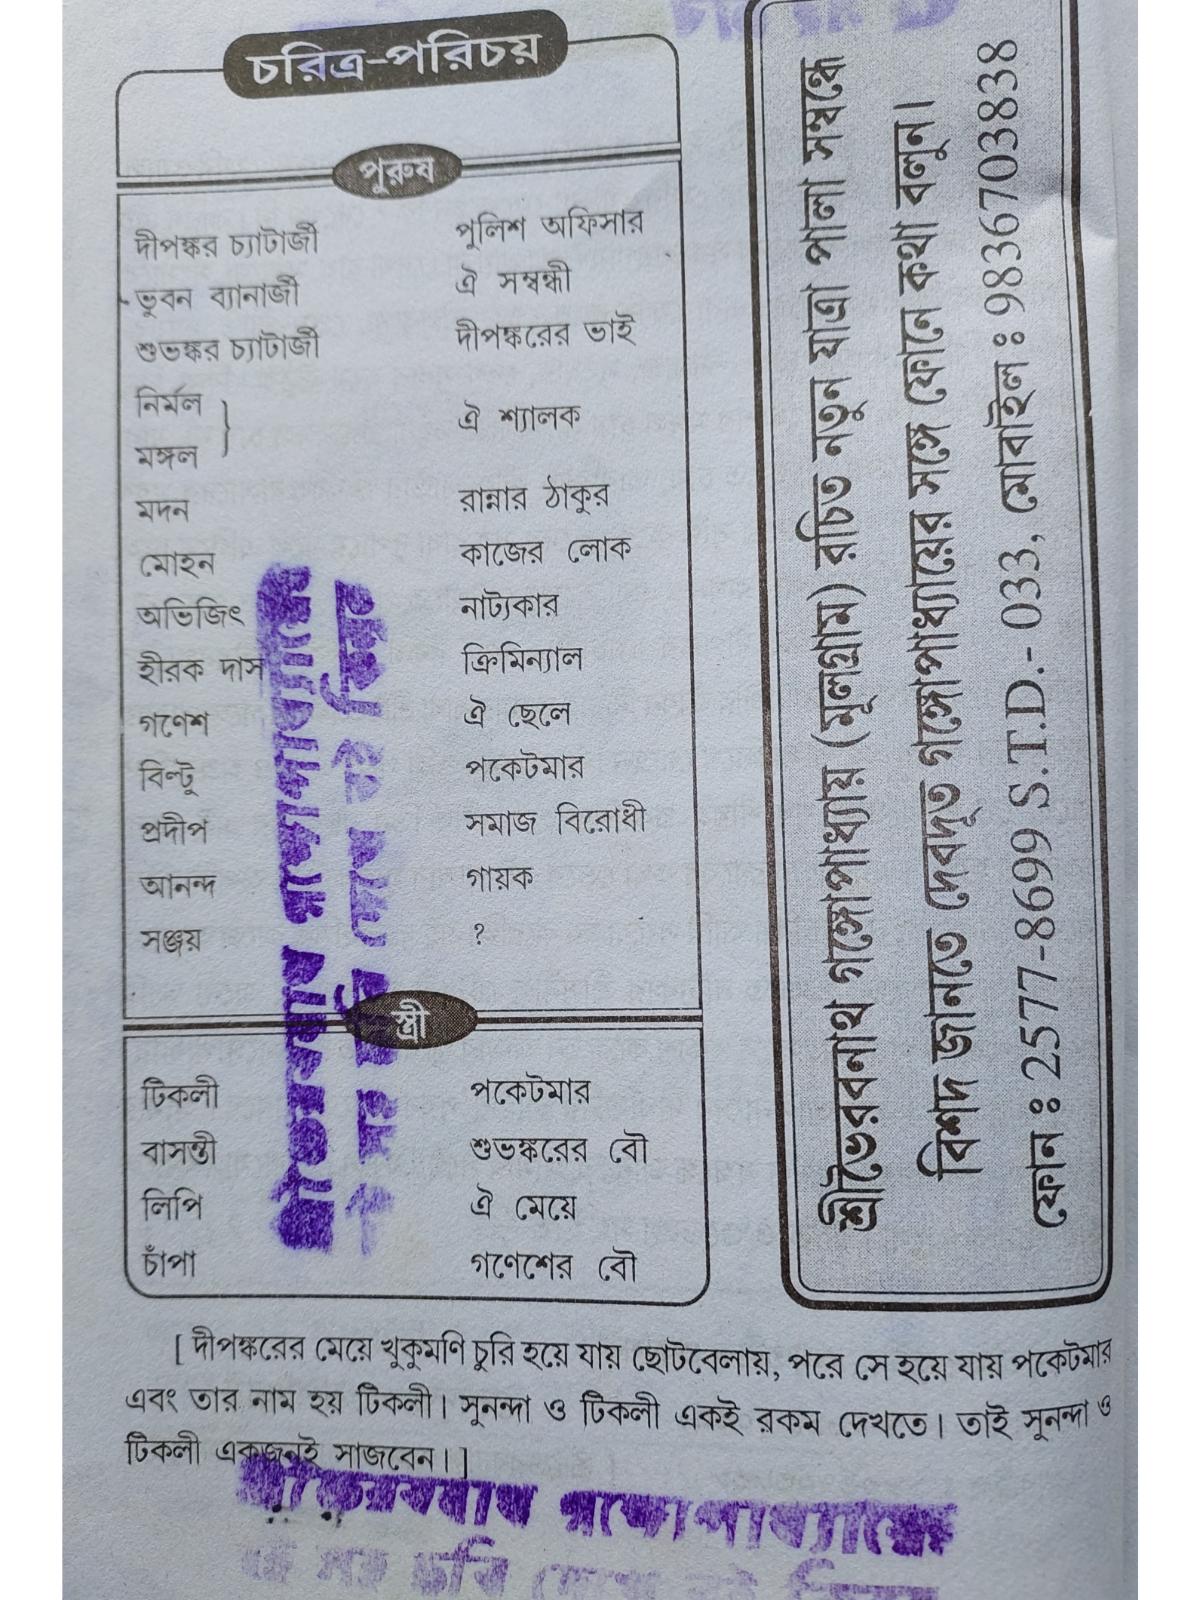 চরিত্র-পরিচয়
পুরুষ
দীপঙ্কর চ্যাটার্জী পুলিশ অফিসার
ভুবন ব্যানার্জী ঐ সম্বন্ধী
শুভঙ্কর চ্যাটার্জী দীপঙ্করের ভাই
নির্মল
} ঐ শ্যালক
মঙ্গল
মদন রান্নার ঠাকুর
মোহন কাজের লোক
অভিজিৎ নাট্যকার
হীরক দাস ক্রিমিন্যাল
গণেশ ঐ ছেলে
বিল্টু পকেটমার
প্রদীপ সমাজ বিরোধী
আনন্দ গায়ক
সঞ্জয় ?
স্ত্রী
টিকলী পকেটমার
বাসন্তী শুভঙ্করের বৌ
লিপি ঐ মেয়ে
চাঁপা গণেশের বৌ
[ দীপঙ্করের মেয়ে খুকুমণি চুরি হয়ে যায় ছোটবেলায়, পরে সে হয়ে যায় পকেটমার
এবং তার নাম হয় টিকলী। সুনন্দা ও টিকলী একই রকম দেখতে। তাই সুনন্দা ও
টিকলী একজনই সাজবেন। ]
শ্রীভৈরবনাথ গঙ্গোপাধ্যায় (মূলগ্রাম) রচিত নতুন যাত্রা পালা সম্বন্ধে
বিশদ জানতে দেবদূত গঙ্গোপাধ্যায়ের সঙ্গে ফোনে কথা বলুন।
ফোন ঃ 2577-8699 S.T.D.- 033, মোবাইল ঃ 9836703838
শ্রীভৈরবনাথ গঙ্গোপাধ্যায়ের
ছবি দেখে বই কিনুন
শ্রীভৈরবনাথ গঙ্গোপাধ্যায়ের
ছবি দেখে বই